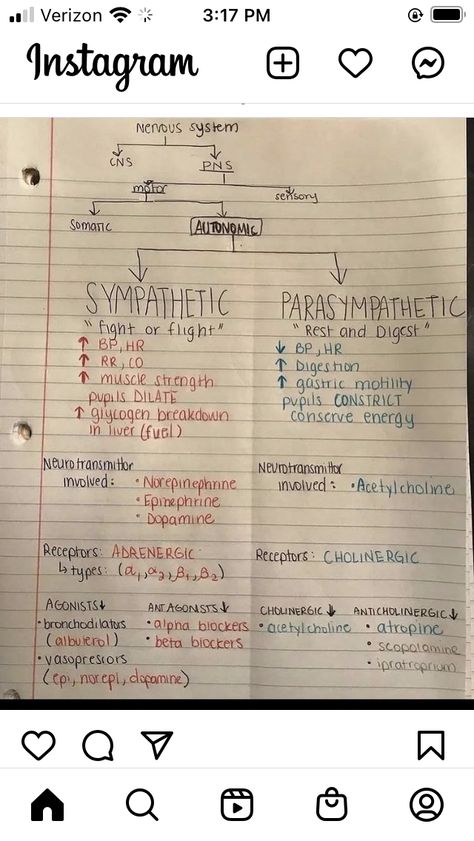 Verizon 3:17 PM
Instagram
Nervous system
CNS PNS
motor sensory
Somatic AUTONOMIC
SYMPATHETIC
"fight or flight"
↑ BP, HR
↑ RR, CO
↑ muscle strength
pupils DILATE
↑ glycogen breakdown
in liver (fuel)
Neurotransmittor
involved: • Norepinephrine
• Epinephrine
• Dopamine
Receptors: ADRENERGIC
↳ types: (α1, α2, β1, β2)
AGONISTS↓
• bronchodilators
(albuterol)
• vasopressors
(epi, norepi, dopamine)
ANTAGONISTS↓
• alpha blockers
• beta blockers
PARASYMPATHETIC
"Rest and Digest"
↓ BP, HR
↑ Digestion
↑ gastric motility
pupils CONSTRICT
conserve energy
Neurotransmittor
involved: • Acetylcholine
Receptors: CHOLINERGIC
CHOLINERGIC↓
• acetylcholine
ANTICHOLINERGIC↓
• atropine
• scopolamine
• ipratroprium